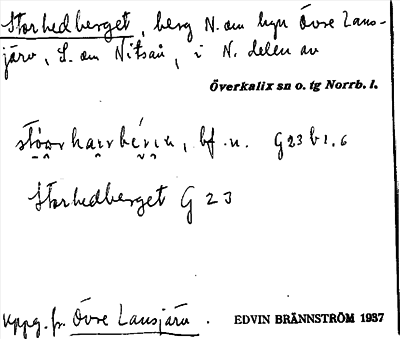 Storhedberget, berg N. om byn Övre Lans-
järv, S. om Nitsån, i N. delen av
Överkalix sn o. tg Norrb. l.
bf. n. G23 b 1.6
Storhedberget G 23
Uppg. fr. Övre Lansjärv.
EDVIN BRÄNNSTRÖM 1937